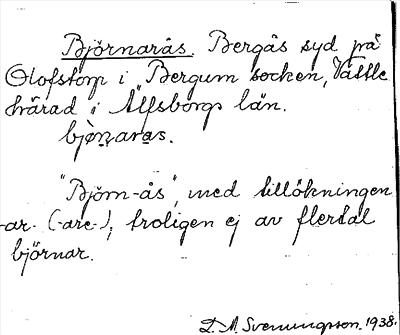 Björnarås. Bergås syd på
Olofstorp i Bergum socken, Vättle
härad i Älfsborgs län.
bjò̤n̥aras.
"Björn-ås", med tillökningen
-ar- (-are-), troligen ej av flertal
björnar.
D. A. Svenungsson. 1938.